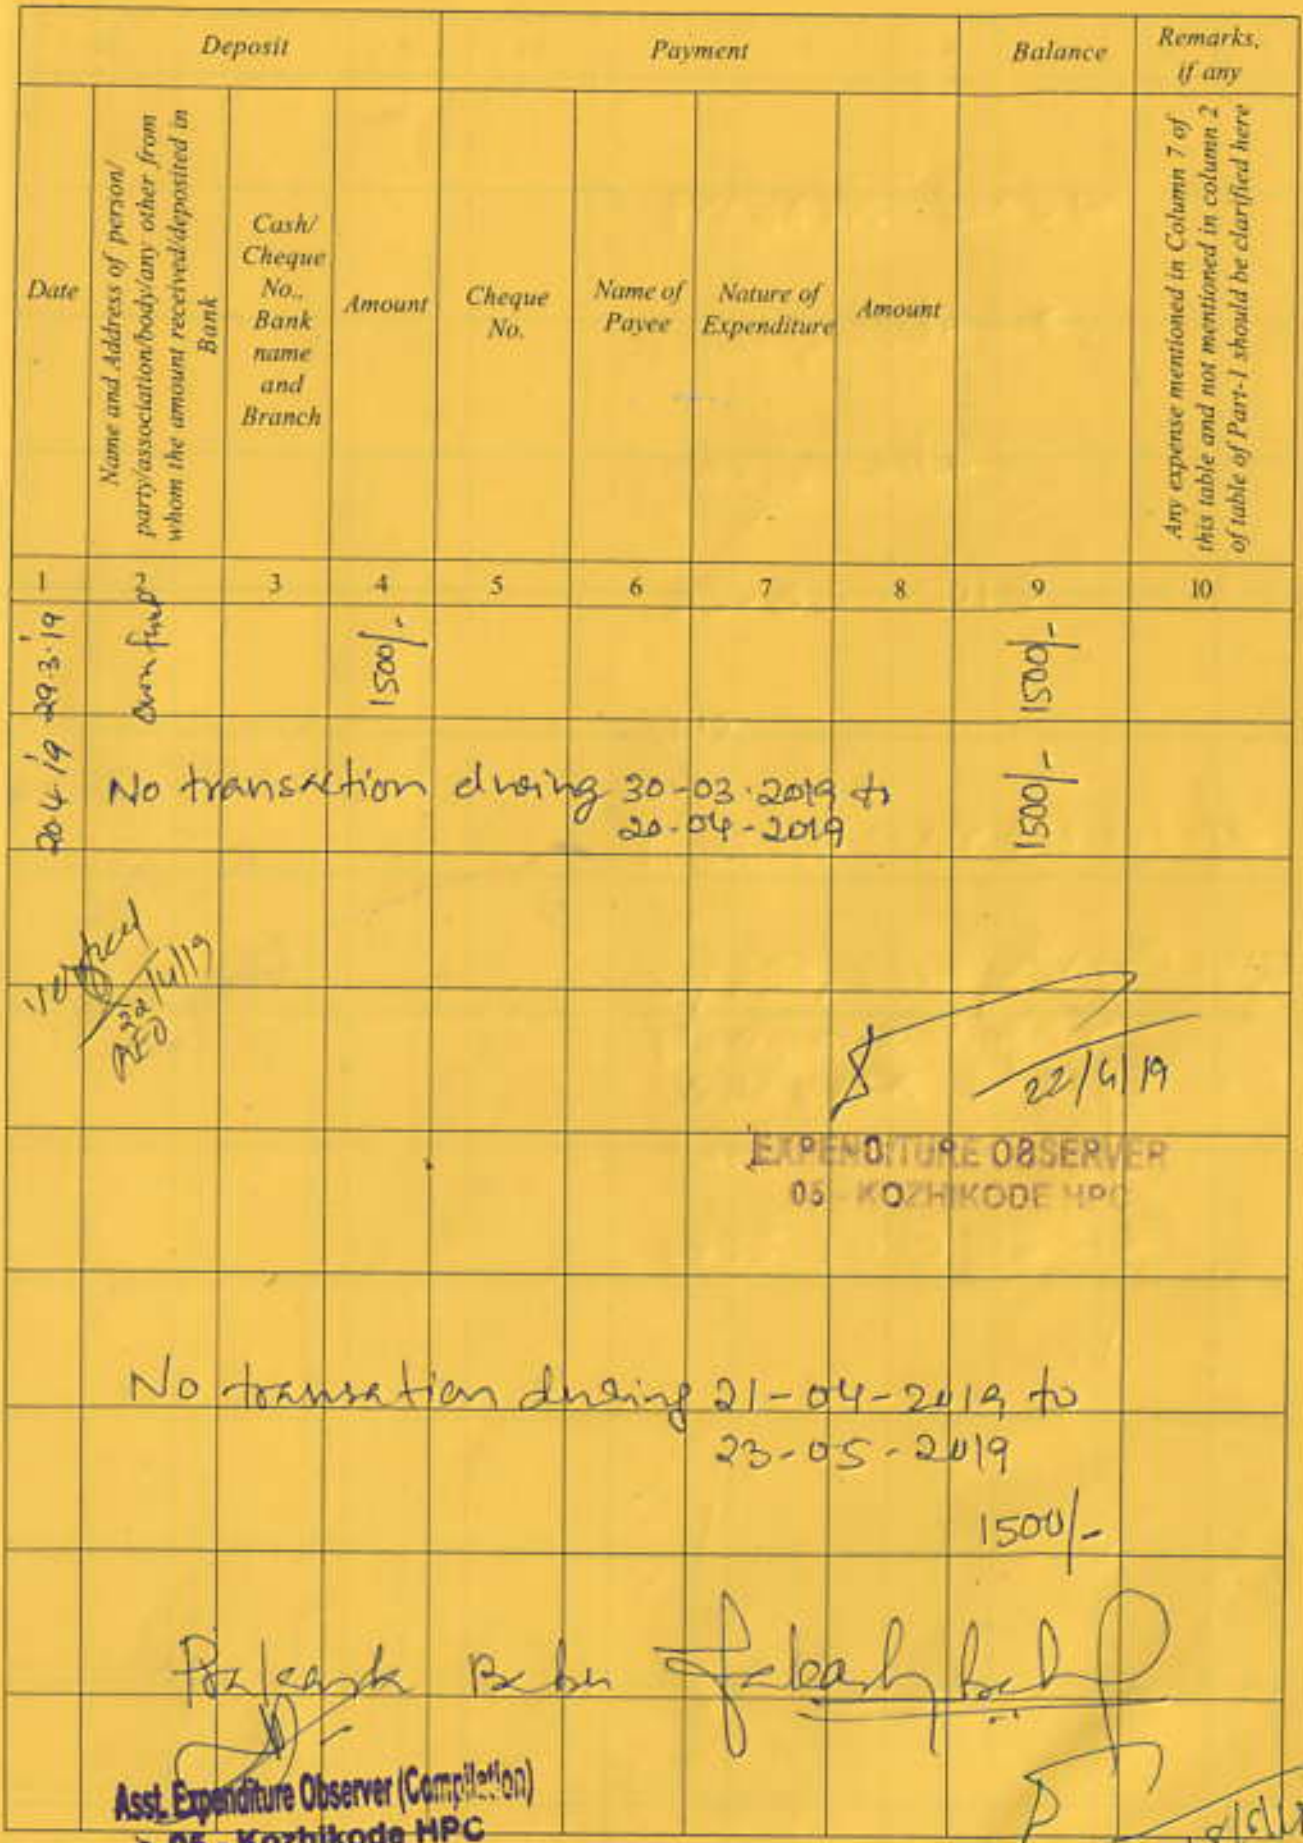 Deposit
Payment
Balance
Remarks,
if any
Date
Name and Address of person/
party/association/body/any other from
whom the amount received/deposited in
Bank
Cash/
Cheque
No.,
Bank
name
and
Branch
Amount
Cheque
No.
Name of
Payee
Nature of
Expenditure
Amount
Any expense mentioned in Column 7 of
this table and not mentioned in column 2
of table of Part-I should be clarified here
1 2 3 4 5 6 7 8 9 10
29.3.'19 Own fund 1500/- 1500/-
20.4.'19 No transaction during 30-03-2019 to
20-04-2019
1500/-
Verified
22/4/19
AEO
22/4/19
EXPENDITURE OBSERVER
05 - KOZHIKODE HPC
No transation during 21-04-2019 to
23-05-2019
1500/-
Prakash Babu Prakash Babu
Asst. Expenditure Observer (Compilation)
05 - Kozhikode HPC